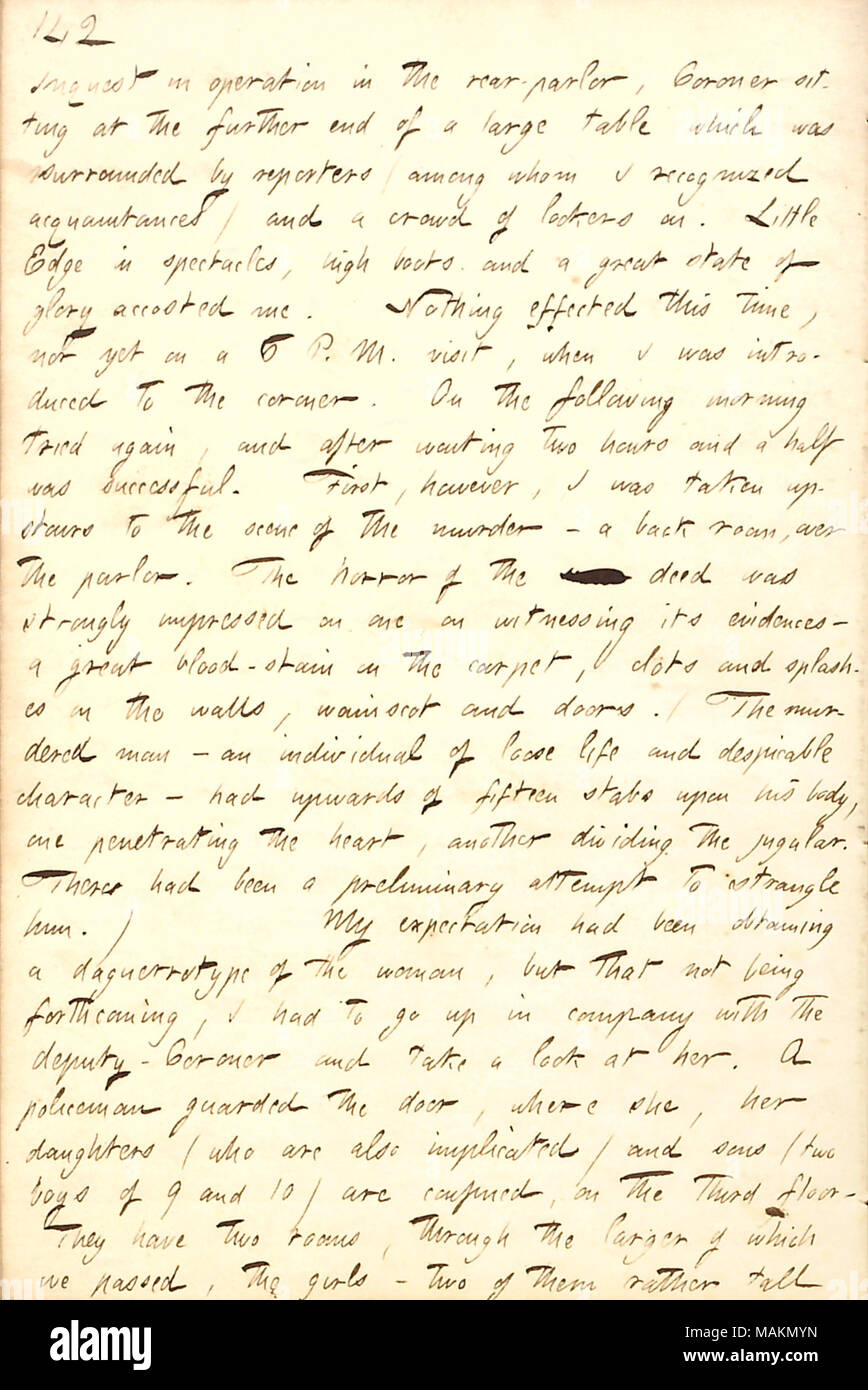 142
inquest in operation in the rear-parlor, Coroner sit-
ting at the further end of a large table which was
surrounded by reporters (among whom I recognized
acquaintances) and a crowd of lookers on. Little
Edge in spectacles, high boots and a great state of
glory accosted me. Nothing effected this time,
not yet on a 6 P. M. visit, when I was intro-
duced to the coroner. On the following morning
tried again, and after waiting two hours and a half
was successful. First, however, I was taken up-
stairs to the scene of the murder – a back room, over
the parlor. The horror of the deed was
strongly impressed on one, on witnessing its evidences –
a great blood-stain on the carpet, clots and splash-
es on the walls, wainscot and doors. (The mur-
dered man – an individual of loose life and despicable
character – had upwards of fifteen stabs upon his body,
one penetrating the heart, another dividing the jugular.
There had been a preliminary attempt to strangle
him.) My expectation had been obtaining
a daguerrotype of the woman, but that not being
forthcoming, I had to go up in company with the
deputy-Coroner and take a look at her. A
policeman guarded the door, where she, her
daughters (who are also implicated) and sons (two
boys of 9 and 10) are confined, on the third floor –
They have two rooms, through the larger of which
we passed, the girls – two of them rather tall
alamy
Image ID: MAKMYN
www.alamy.com